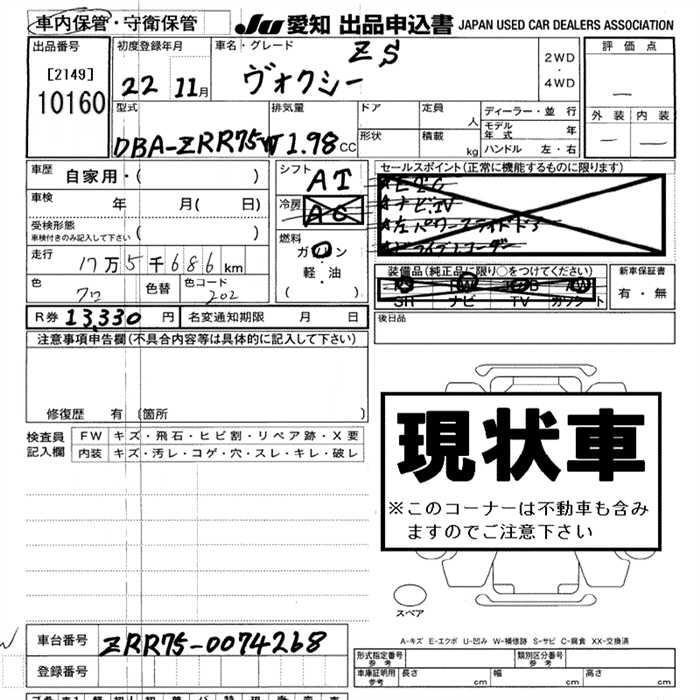 車内保管・守衛保管 JU 愛知 出品申込書 JAPAN USED CAR DEALERS ASSOCIATION
出品番号 初度登録年月 車名・グレード ZS 2WD・4WD 評価点
[2149]
10160
22 11月 ヴォクシー
－
型式 排気量 ドア 定員 人 ディーラー・並行 外装 内装
DBA-ZRR75W 1.98 CC 形状 積載 kg モデル年式
ハンドル 左・右
車歴 自家用・( ) シフト AT セールスポイント(正常に機能するものに限ります)
車検 年 月( 日) 冷房 AC
ナビ、TV
左パワースライドドア
ドライブレコーダー
受検形態 車検付きのみ記入して下さい ( ) 燃料 ガソリン・軽・油 ( )
走行 17万5千686km
装備品(純正品に限り○をつけてください) 新車保証書
色 クロ 色替 色コード 202
SH ナビ TV カセット 有・無
R券 13,330円 名変通知期限 月 日 後日品
注意事項申告欄(不具合内容等は具体的に記入して下さい)
修復歴 有 (箇所 )
検査員記入欄 FW キズ・飛石・ヒビ割・リペア跡・X要
内装 キズ・汚レ・コゲ・穴・スレ・キレ・破レ
現状車
※このコーナーは不動車も含み
ますのでご注意下さい
スペア
A-キズ E-エクボ U-凹み W-補修跡 S-サビ C-腐食 XX-交換済
車台番号 ZRR75-0074268
登録番号
形式指定番号 参考 類別区分番号 参考
車庫証明用 参考 長さ cm 幅 cm 高さ cm